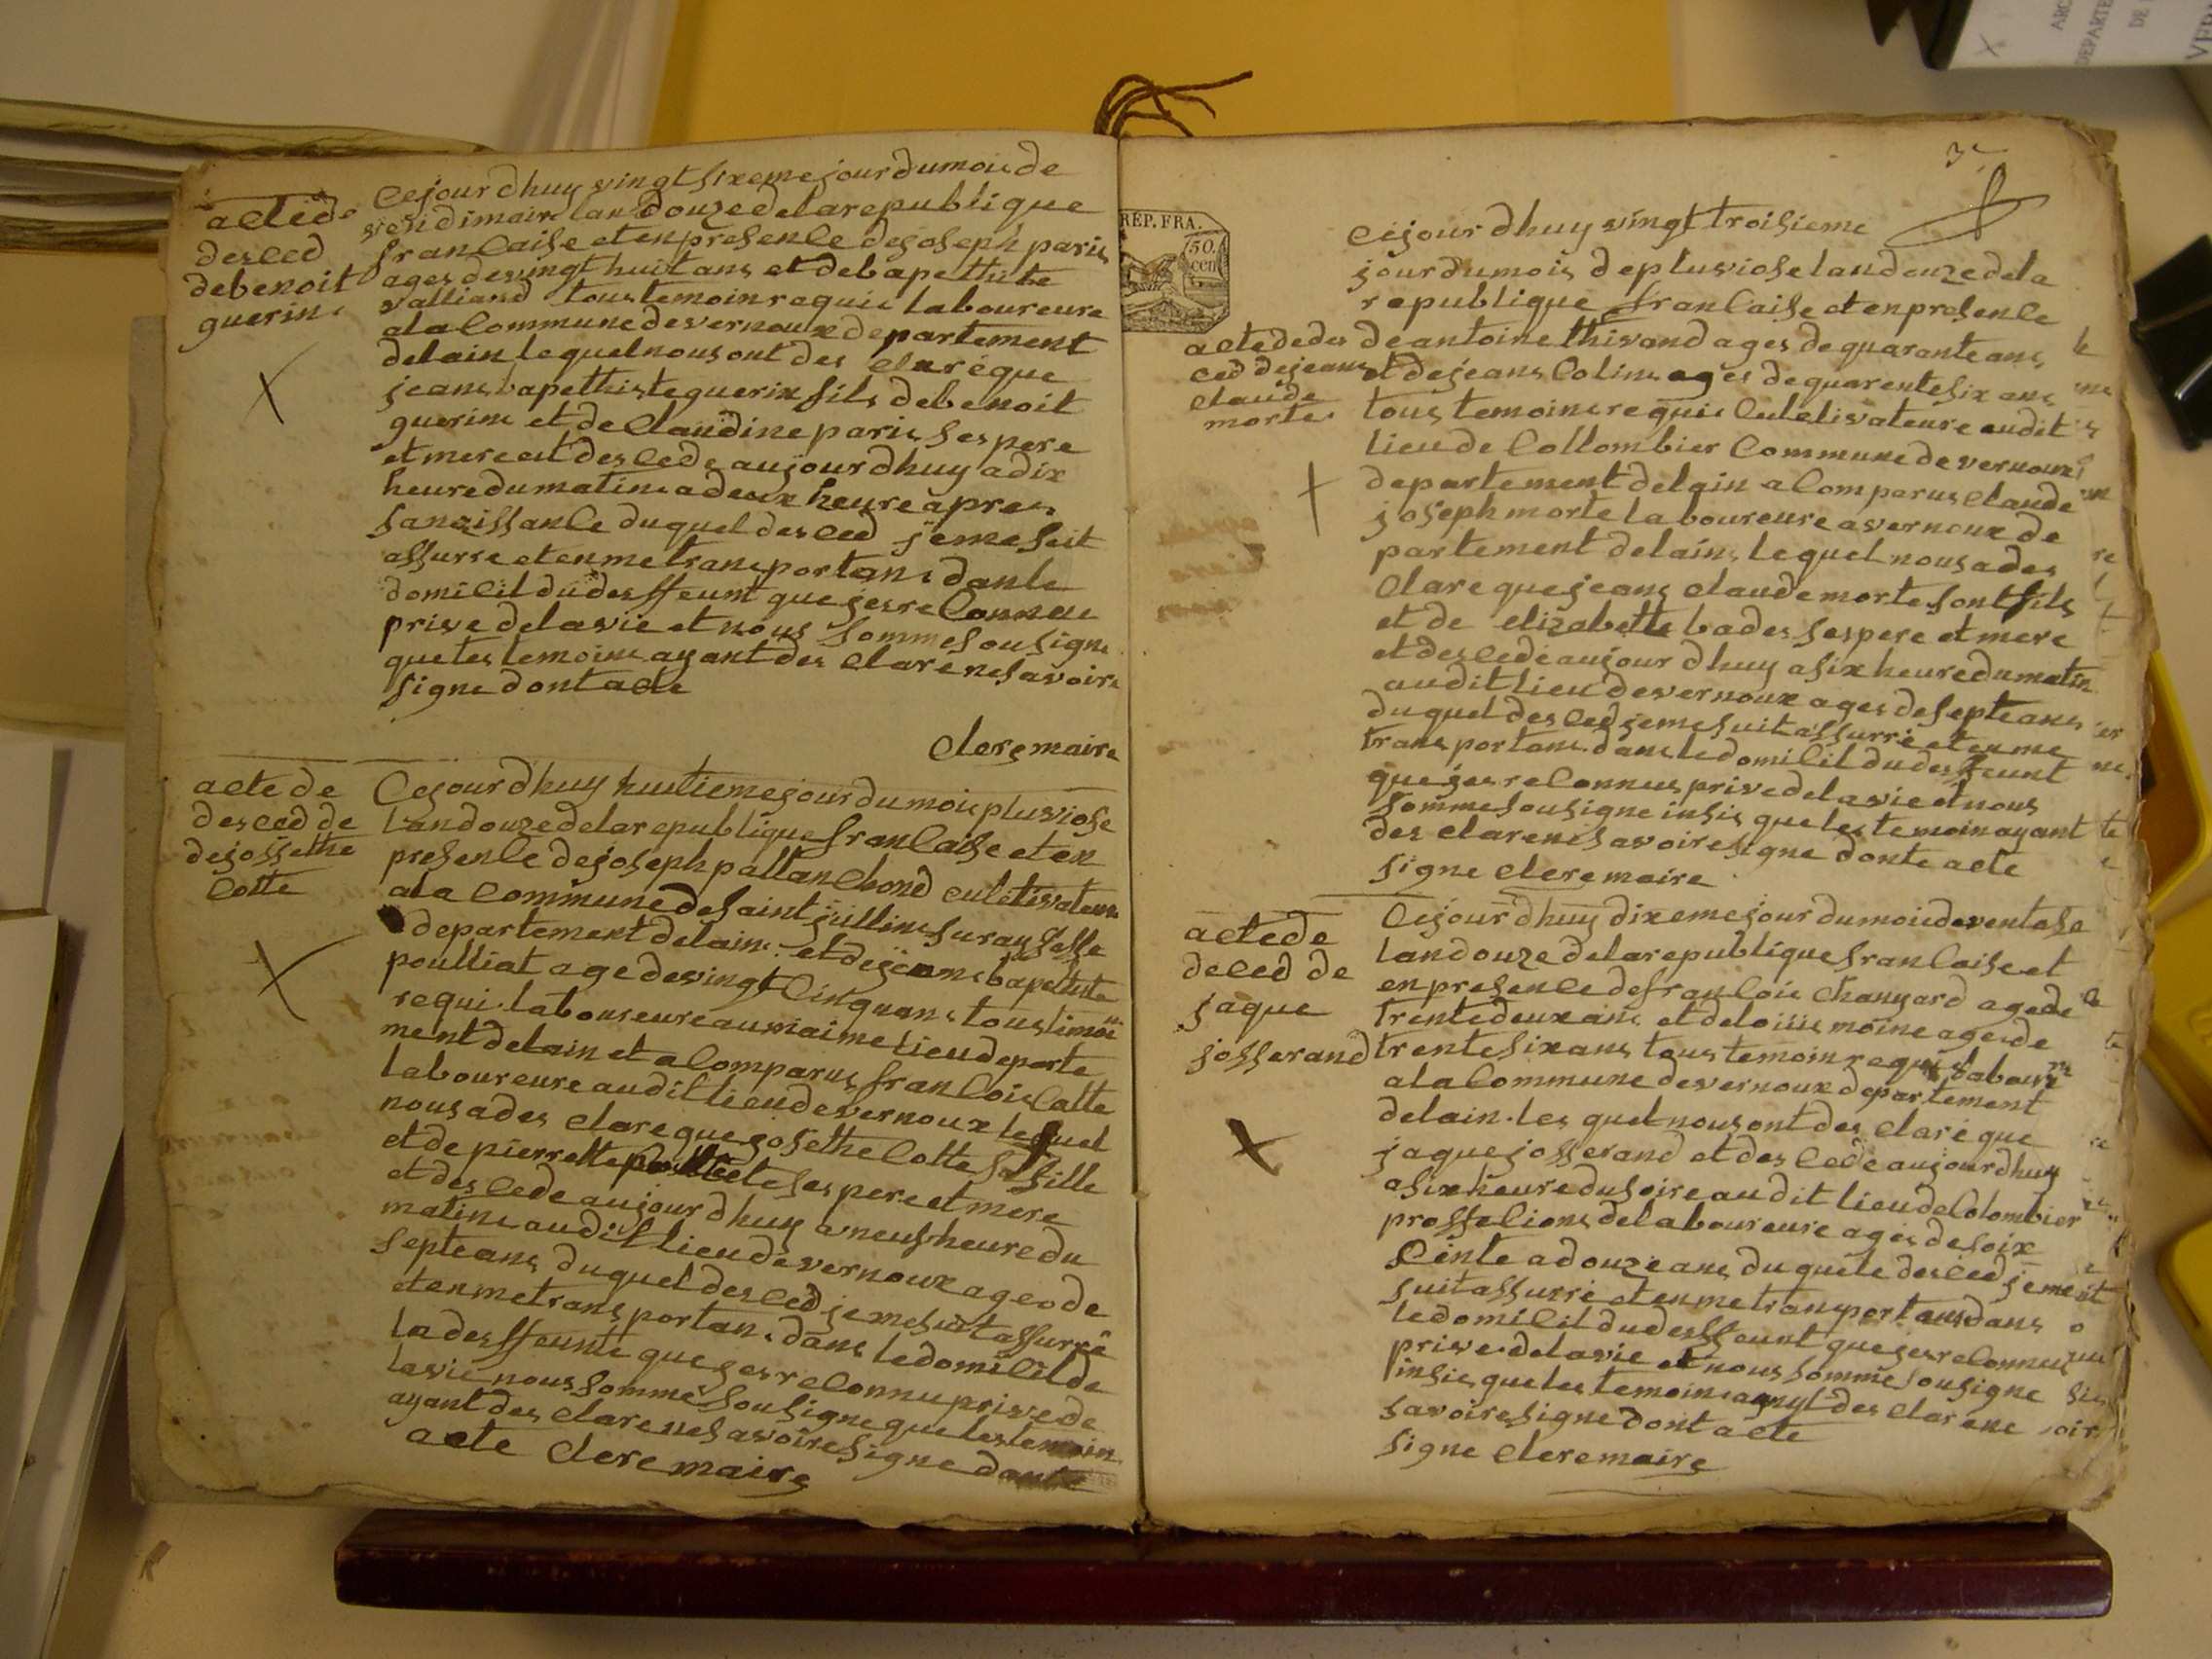 acte de
desced
debenoit
guerin
cejour dhuy vingt sixeme jour du mois de
vendimaire lan douze de la republique
francaise et en presence de joseph paris
ages de vingt huit ans et de bapethiste
valliand tous temoin requis laboureure
a la commune de vernoux departement
de lain lequel nous ont des clare que
jeans bapethiste guerin fils de benoit
guerins et de claudine paris ses pere
et mere est des cede aujour dhuy a dix
heure du matins a deux heure apres
sa naissance duquel desced jeme suit
assurre et en me transportans dan le
domicil du deffeunt que jes reconnu
prive de la vie et nous somme sousigne
que les temoins ayant des clare ne savoir
signe dont acte
clere maire
acte de
desced de
de jossethe
cotte
Cejour dhuy huitieme jour du mois pluviose
lan douze de la republique francaise et en
presence de joseph pattanchond culetivateure
a la commune de saint jullins sur aysselle
departement de lains et de jeans bapethiste
poulliat age de vingt cinquans tous timoi
requi laboureure au maime lieu departe
ment de lain et a comparus francois catte
laboureure audit lieu de vernoux lequel
nous a des clare que josethe cotte sa fille
et de pierrette ses pere et mere
et des cede aujour dhuy a neuf heure du
matins audit lieu de vernoux ages de
septe ans duquel desced je me suit assurre
et en me transportans dans le domicil de
la deffeunte que jes reconnu prive de
la vie nous somme sousigne que les temoin
ayant des clare ne savoire signe donte
acte clere maire
3
REP. FRA.
50
cen
cejour dhuy vingt troisieme
jour du mois de pluviose lan douze de la
republique francaise et en presence
acte de des
ced de jeans
claude
morte
de antoine thivand ages de quarante ans
et de jeans colins ages de quarente six ans
tous temoins requis culetivateure audit
lieu de collombier commune de vernoux
departement de lain a comparus claude
joseph morte laboureure a vernoux de
partement de lains lequel nous a des
clare que jeans claude morte sont fils
et de elizabette bades ses pere et mere
et des cede aujour dhuy a six heure du matin
audit lieu de vernoux ages de septe ans
duquel desced jeme suit assurre et en me
transportans dans le domicil du deffeunt
que jes reconnus prive de la vie et nous
somme sousigne insis que les temoin ayant
des clare ne savoire signe donte acte
signe clere maire
acte de
deced de
jaque
josserand
Cejour dhuy dixeme jour du mois de ventose
lan douze de la republique francaise et
en presence de francois chanyard age de
trente deux ans et de louis moine ages de
trente six ans tous temoin requis labour
a la commune de vernoux departement
de lain les quel nous ont des clare que
jaque josserand et des cede aujour dhuy
a six heure du soire audit lieu de colombier
proffesions de laboureure ages de soix
sente a douze ans duquele desced jeme
suit assurre et en me transportans dans
le domicil du deffeunt que jes reconnu
prive de la vie et nous somme sousigne
insis que les temoins aynyt des clare ne
savoire signe dont acte
signe clere maire